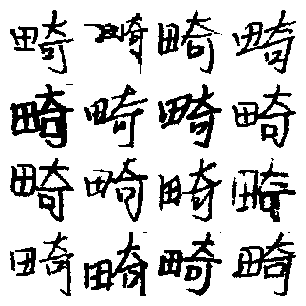 畸畸畸畸
畸畸畸畸
畸畸畸畸
畸畸畸畸